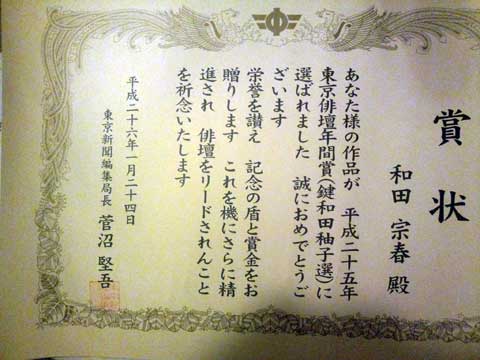 賞状
和田 宗春 殿
あなた様の作品が 平成二十五年
東京俳壇年間賞(鍵和田秞子選)に
選ばれました 誠におめでとうご
ざいます
栄誉を讃え 記念の盾と賞金をお
贈りします これを機にさらに精
進され 俳壇をリードされんこと
を祈念いたします
平成二十六年一月二十四日
東京新聞編集局長 菅沼 堅吾